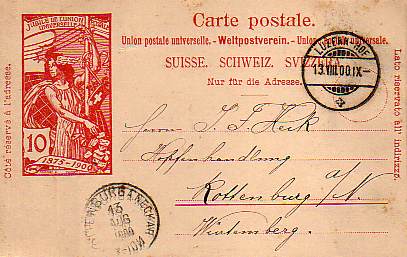 JUBILÉ DE L'UNION
UNIVERSELLE
10
1875-1900
Carte postale.
Union postale universelle. - Weltpostverein. - Unione postale universale.
SUISSE. SCHWEIZ. SVIZZERA.
Nur für die Adresse.
Côté réservé à l'adresse.
Lato riservato all' indirizzo.
LUZERN
13.VIII.00.IX-
Herrn J. F. Heck
Hopfenhandlung
Rottenburg a/N.
Württemberg
13
AUG
1900